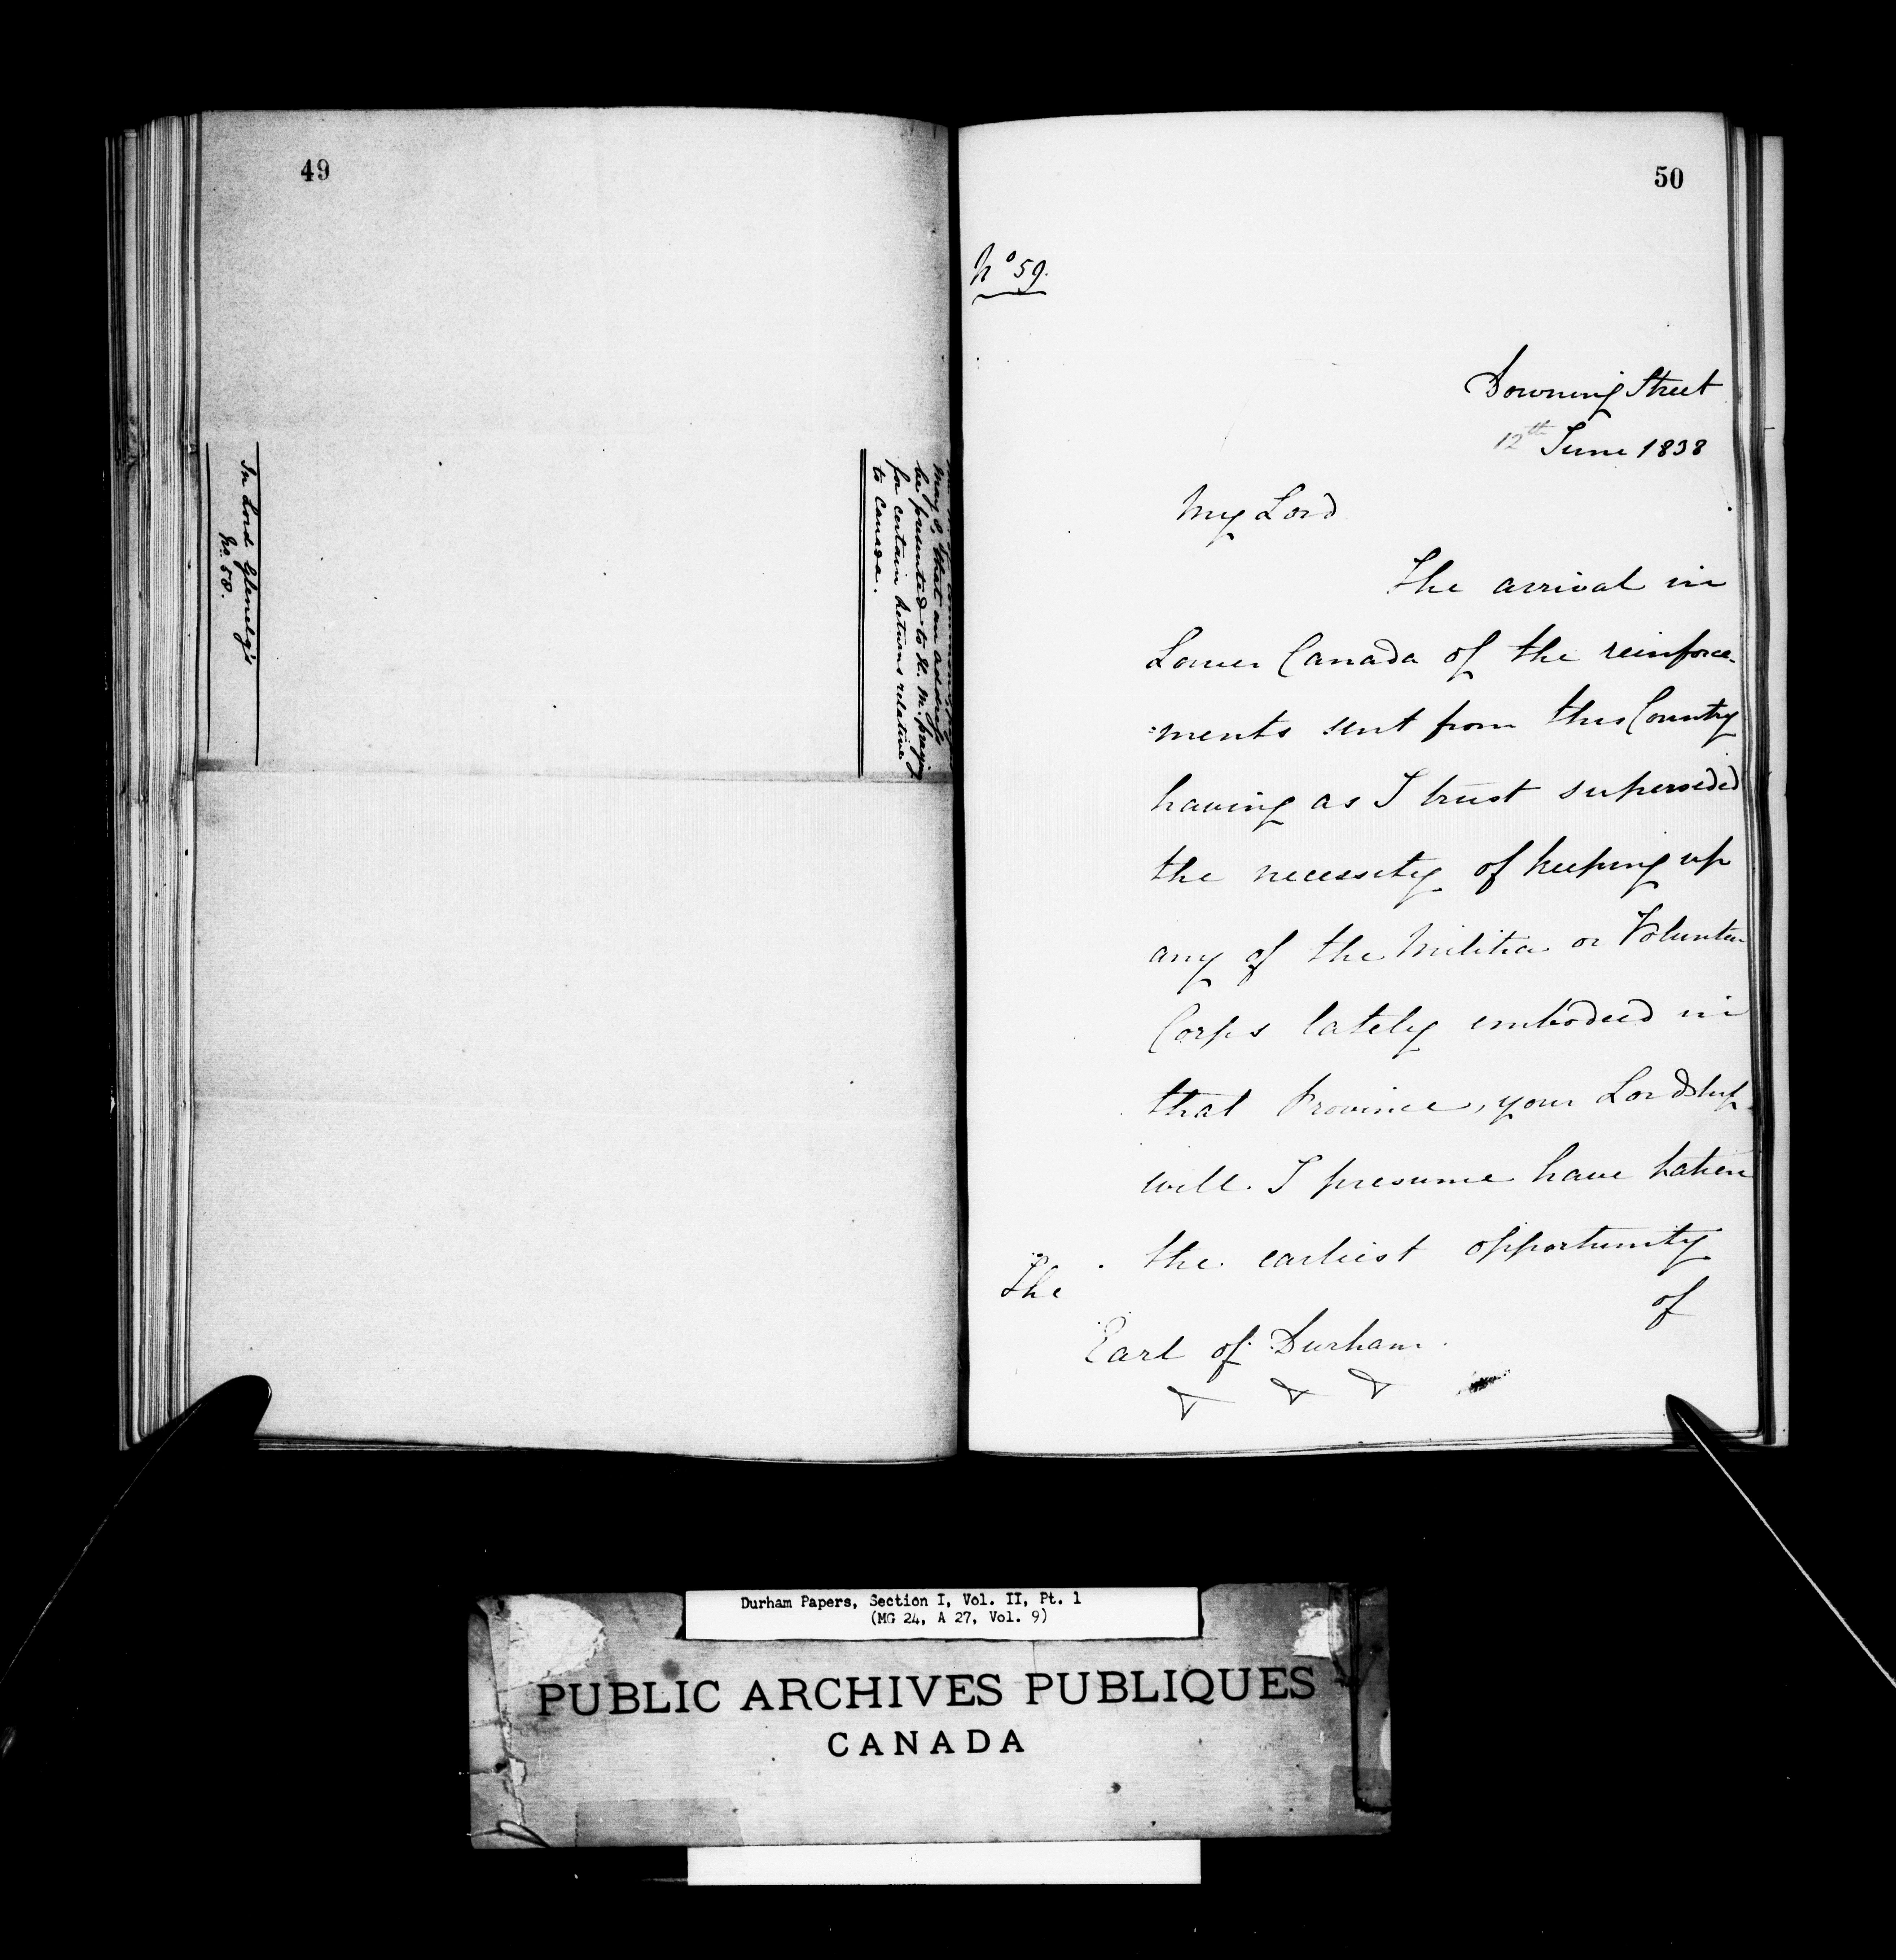 49
In Lord Glenelg's
No. 58.
May 8, that an address
be presented to H. M. praying
for certain Returns relative
to Canada.
50
No 59.
Downing Street
12th June 1838
My Lord
The arrival in
Lower Canada of the reinforce-
:ments sent from this Country
having as I trust superseded
the necessity of keeping up
any of the Militia or Volunteer
Corps lately embodied in
that Province, your Lordship
will I presume have taken
the earliest opportunity
of
The
Earl of Durham.
Durham Papers, Section I, Vol. II, Pt. 1
(MG 24, A 27, Vol. 9)
PUBLIC ARCHIVES PUBLIQUES
CANADA